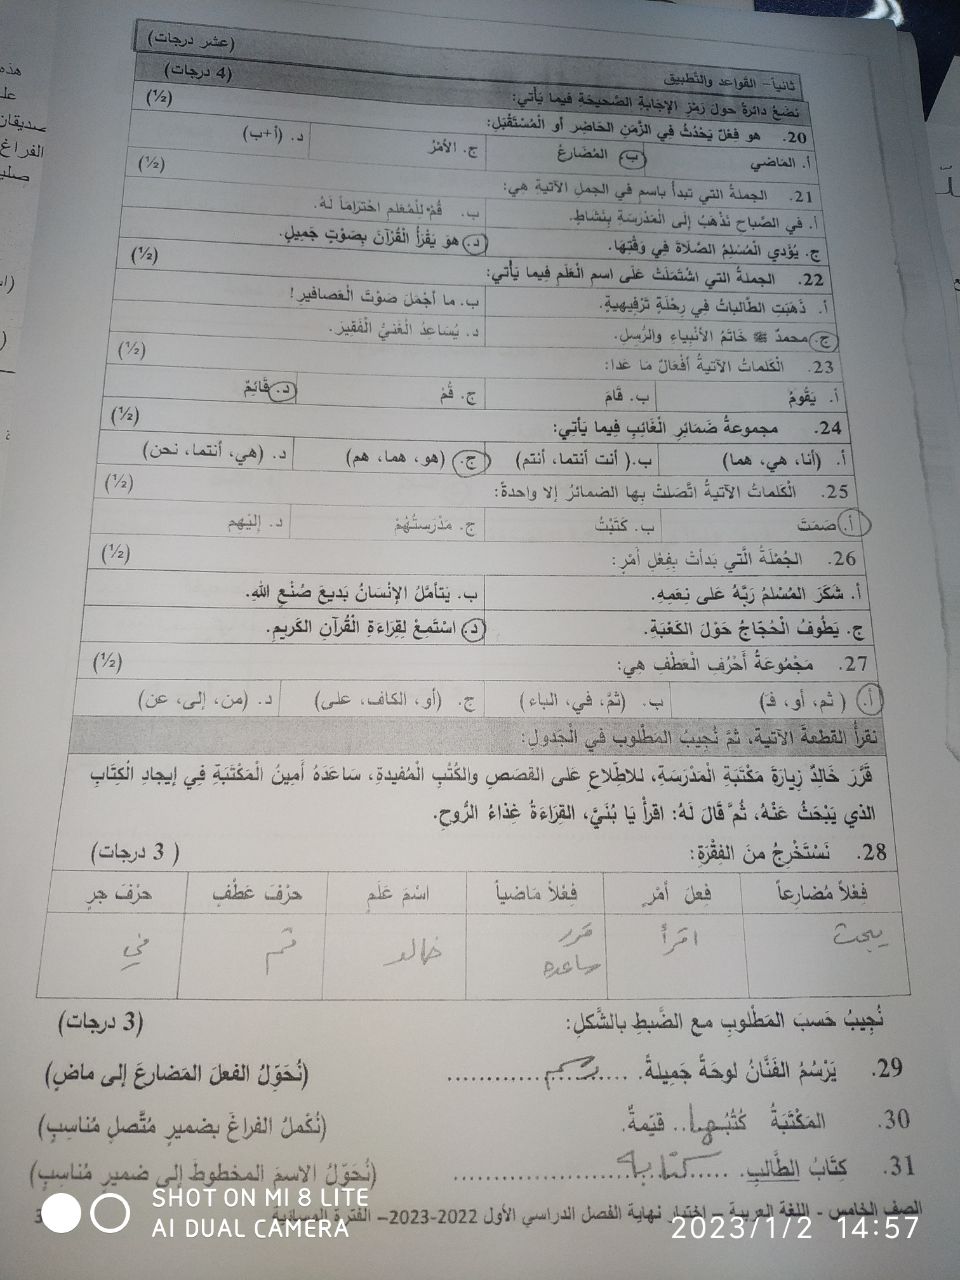 (عشر درجات)
ثانياً- القواعد والتطبيق
(4 درجات)
نضعُ دائرةً حولَ رَمْزِ الإجَابَةِ الصَّحيحَةِ فيما يَأتي:
20. هو فِعْلٌ يَحْدُثُ في الزَّمَنِ الحَاضِرِ أو الْمُسْتَقْبَلِ: (½)
أ. المَاضي ب. المُضارعُ ج. الأمْرُ د. (أ+ب)
21. الجملةُ التي تبدأُ باسمٍ في الجملِ الآتيةِ هِيَ: (½)
أ. في الصَّباحِ نَذْهَبُ إلى الْمَدْرَسَةِ بِنَشاطٍ. ب. قُمْ لِلْمُعَلمِ احْتِرَاماً لَهُ.
ج. يُؤَدي الْمُسْلِمُ الصَّلاةَ في وَقْتِهَا. د. هوَ يَقْرَأُ الْقُرْآنَ بِصَوْتٍ جَمِيلٍ.
22. الجملةُ التي اشْتَمَلَتْ عَلَى اسمِ الْعَلَمِ فِيمَا يَأْتي: (½)
أ. ذَهَبَتِ الطَّالباتُ في رِحْلَةٍ تَرْفِيهِيةٍ. ب. ما أجْمَلَ صَوْتَ الْعَصافيرِ!
ج. محمدٌ ﷺ خَاتَمُ الأنْبِياءِ والرُّسِلِ. د. يُسَاعِدُ الْغَنيُّ الْفَقِيرَ.
23. الْكَلِماتُ الآتيةُ أَفْعَالٌ مَا عَدا: (½)
أ. يَقُومُ ب. قَامَ ج. قُمْ د. قَائِمٌ
24. مجموعةُ ضَمَائِرِ الْغَائِبِ فِيما يَأْتِي: (½)
أ. (أنا، هي، هما) ب. ( أنت أنتما، أنتم) ج. (هو، هما، هم) د. (هي، أنتما، نحن)
25. الْكَلماتُ الآتيةُ اتَّصَلَتْ بِها الضمائرُ إلا واحدةً: (½)
أ. صَمَتَ ب. كَتَبْتُ ج. مَدْرَستُهُمْ د. إليْهِم
26. الجُمْلَةُ الَّتي بَدأتْ بِفِعْلِ أَمْرٍ: (½)
أ. شَكَرَ المُسْلمُ رَبَّهُ عَلى نِعَمِهِ. ب. يَتأمَّلُ الإنْسَانُ بَديعَ صُنْعِ اللهِ.
ج. يَطُوفُ الْحُجّاجُ حَوْلَ الكَعْبَةِ. د. اسْتَمِعْ لِقِرَاءَةِ الْقُرآنِ الكَريمِ.
27. مَجْمُوعَةُ أَحْرُفِ الْعَطْفِ هِيَ: (½)
أ. ( ثم، أو، فَ) ب. (ثمَّ، في، الباء) ج. (أو، الكاف، على) د. (من، إلى، عن)
نقرأُ القطعةَ الآتيةَ، ثمَّ نُجِيبُ المَطْلوب في الْجَدولِ:
قَرَّرَ خَالِدٌ زِيارَةَ مَكْتَبَةِ الْمَدْرَسَةِ، للاطِّلاعِ عَلى القصَصِ والكُتُبِ الْمُفيدةِ، سَاعَدَهُ أَمِينُ الْمَكْتَبَةِ فِي إيجادِ الْكِتَابِ
الذي يَبْحَثُ عَنْهُ، ثُمَّ قَالَ لَهُ: اقرأْ يَا بُنَيَّ، القِرَاءَةُ غِذاءُ الرُّوحِ.
28. نَسْتَخْرِجُ منَ الفِقْرَةِ: ( 3 درجات)
فِعْلاً مُضارعاً فِعلَ أمْرٍ فِعْلاً مَاضياً اسْمَ عَلَمٍ حرْفَ عَطْفٍ حرْفَ جرٍ
يبحث اقرأ قرر خالد ثم في
ساعده
نُجِيبُ حَسبَ المَطْلوبِ مع الضَّبطِ بالشَّكلِ: (3 درجات)
29. يَرْسُمُ الفَنَّانُ لوحَةً جَمِيلةً. ........رسم........ (نُحَوِّلُ الفعلَ المَضارعَ إلى ماضٍ)
30. المَكْتَبَةُ كُتُبُها.. قيّمةٌ. (نُكْملُ الفراغَ بضميرٍ مُتَّصلٍ مُناسِبٍ)
31. كِتَابُ الطَّالبِ. ......كتابه........ (نُحَوِّلُ الاسمَ المخطوطَ إلى ضميرٍ مُناسبٍ)
الصف الخامس - اللغة العربية – اختبار نهاية الفصل الدراسي الأول 2022-2023– الفترة المسائية 3
SHOT ON MI 8 LITE
AI DUAL CAMERA
2023/1/2 14:57